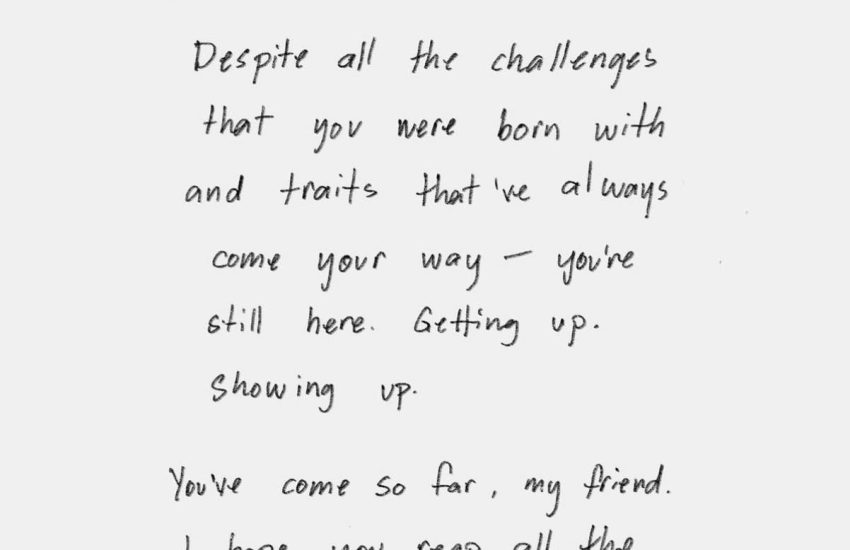 Despite all the challenges
that you were born with
and traits that've always
come your way — you're
still here. Getting up.
Showing up.
You've come so far, my friend.
I hope you reap all the